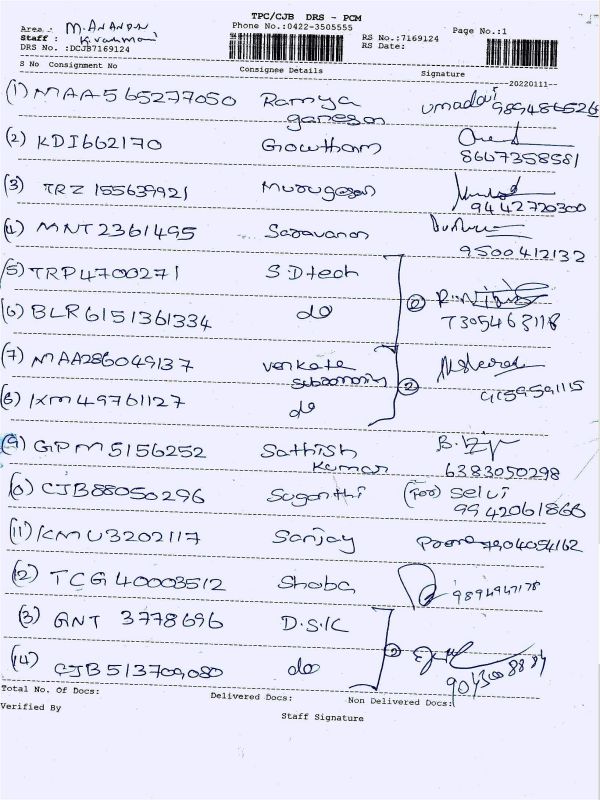 TPC/CJB DRS - PCM
Area : M.ANANDN
Phone No.:0422-3505555
Page No.:1
Staff : K.vahmani
RS No.:7169124
DRS No. :DCJB7169124
RS Date:
S No Consignment No Consignee Details Signature
20220111
(1) MAA565277050 Ramya ganesan umadai 9894866526
(2) KDI662170 Gowtham
8667358581
(3) TRZ 155639921 Murugesan
9442720300
(4) MNT2361495 Saravanan
9500412132
(5) TRP4700271 SDtech
(6) BLR6151361334 do (2)
7305463118
(7) MAA286049137 Venkata Subramani
(8) IXM49761127 do (2)
9159591115
(9) GPM5156252 Sathish Kumar
6383050298
(10) CJB88050296 Suganthi (for) Selvi
9942061866
(11) KMU3202117 Sanjay 7904054162
(12) TCG40003512 Shoba 9894947178
(13) GNT 3778696 D.S.K
(14) CJB513709080 do (2)
Total No. Of Docs: Delivered Docs: Non Delivered Docs:
Verified By
Staff Signature